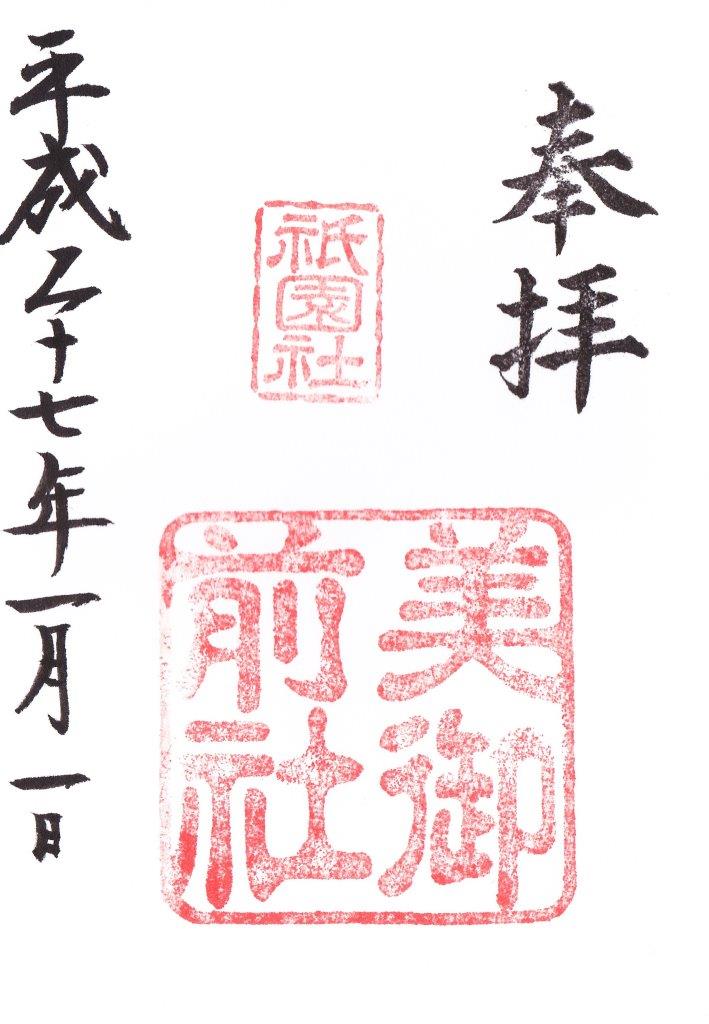 奉拝
祇園社
美御
前社
平成二十七年一月一日